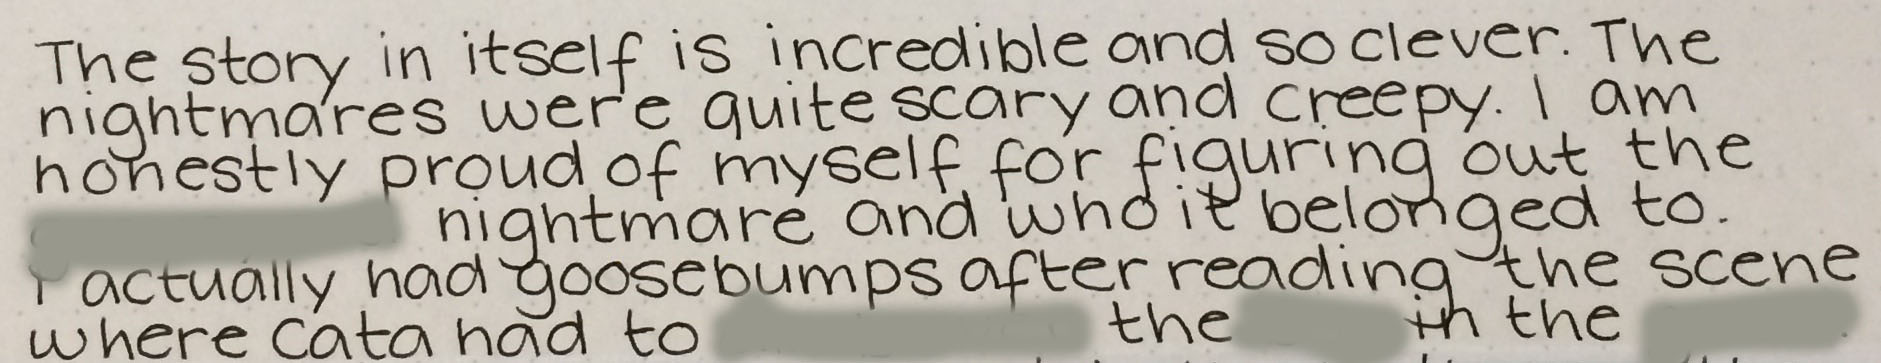 The story in itself is incredible and so clever. The
nightmares were quite scary and creepy. I am
honestly proud of myself for figuring out the
nightmare and who it belonged to.
I actually had goosebumps after reading the scene
where Cata had to the in the